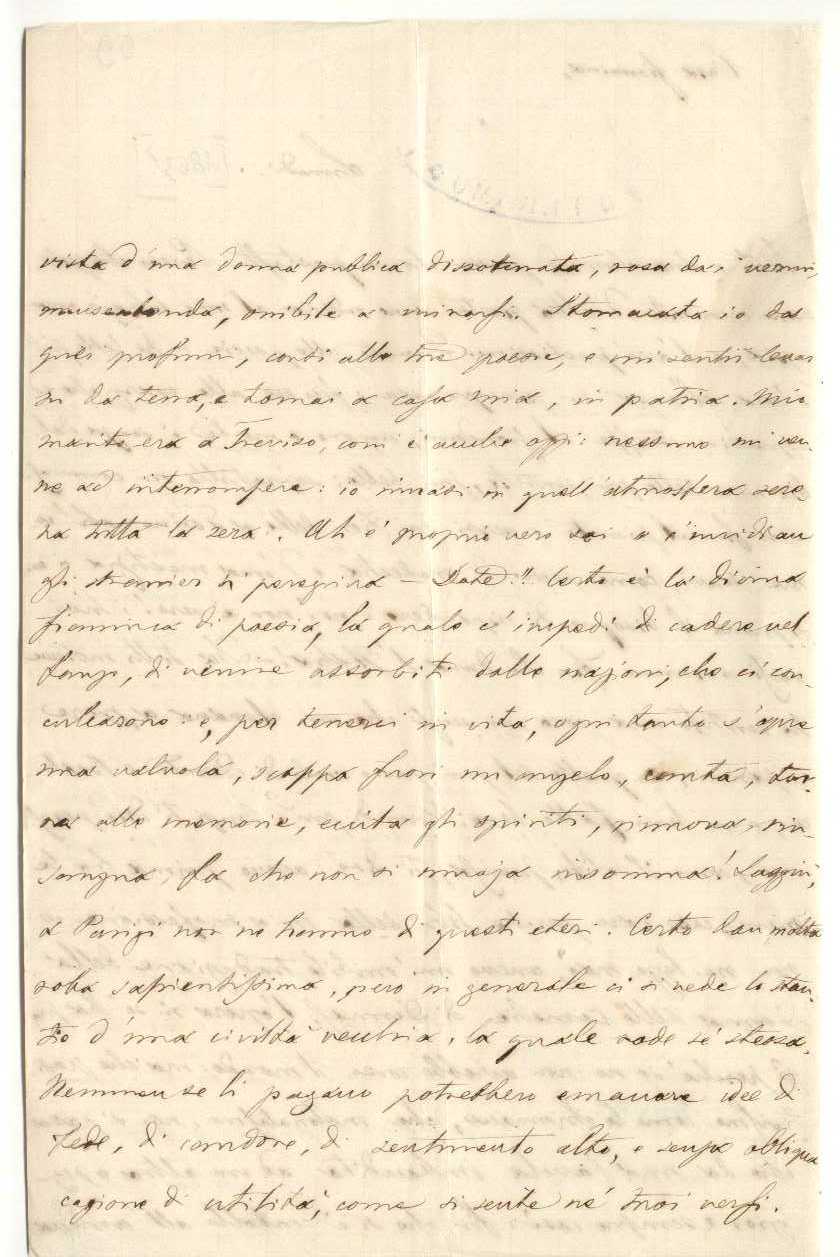 vista d'una donna pubblica dissotterrata, rosa dai vermi,
orribile a mirarsi. Stomacata io da
quei profumi, corsi alle tue poesie, e mi sentii levar
su da terra, e tornai a casa mia, in patria. Mio
marito era a Treviso, com'è anche oggi: nessuno mi ven-
ne ad interrompere: io rimasi in quell'atmosfera sere-
na tutta la sera. Ah è proprio vero sai
gli stranieri peregrina — Date!! Certo è la divina
fiammica di poesia, la quale c'impedì di cadere nel
fango, di venire assorbiti dalle nazioni, che ci con-
culcarono: e, per tenerci in vita, ogni tanto s'apre
una valvola, scappa fuori un angelo, canta, tor-
na alle memorie, eccita gli spiriti, rinnova, rin-
sangua, fa che non si muoja insomma! Laggiù,
a Parigi non ne hanno di questi eteri. Certo dan molta
roba sapientissima, però in generale ci si vede lo stan-
tio d'una civiltà vecchia, la quale rode sé stessa.
Nemmen se li pagano potrebbero emanare idee di
fede, di candore, di sentimento alto, e senza obliqua
cagione di utilità, come si sente ne' tuoi versi.